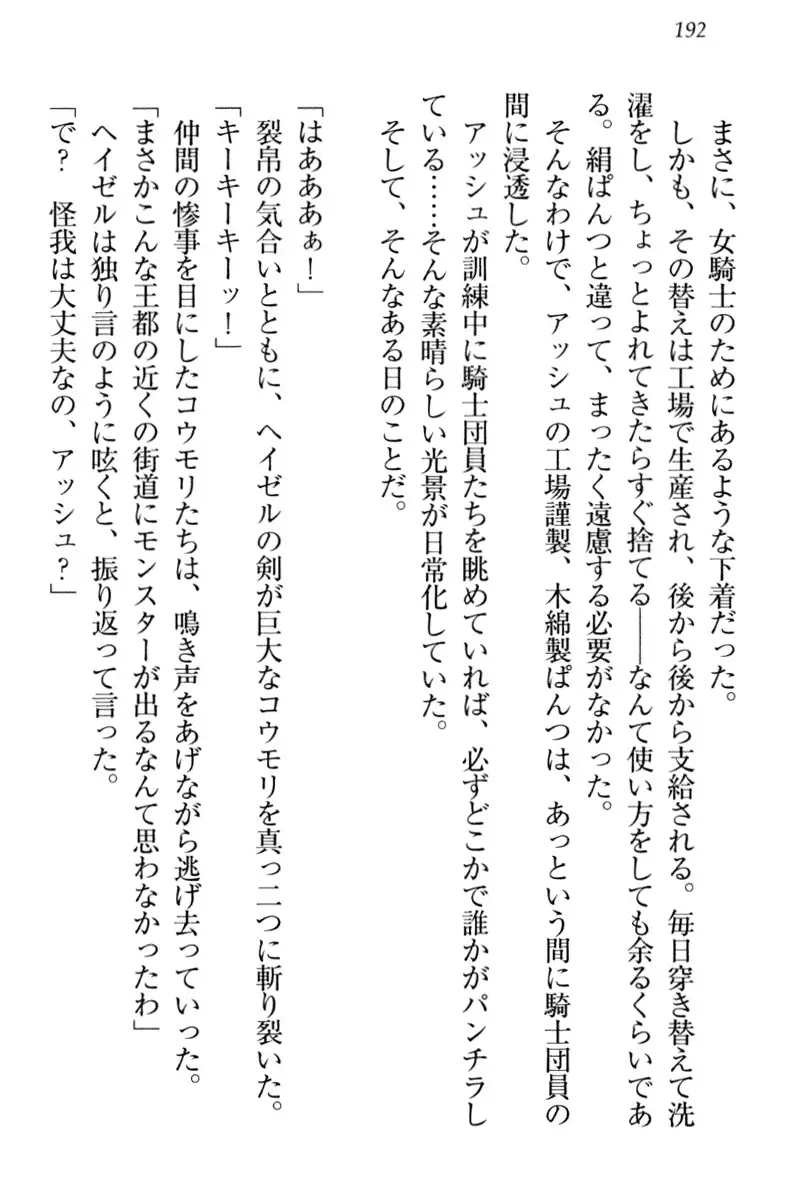 192
まさに、女騎士のためにあるような下着だった。
しかも、その替えは工場で生産され、後から後から支給される。毎日穿き替えて洗
濯をし、ちょっとよれてきたらすぐ捨てる――なんて使い方をしても余るくらいであ
る。絹ぱんつと違って、まったく遠慮する必要がなかった。
そんなわけで、アッシュの工場謹製、木綿製ぱんつは、あっという間に騎士団員の
間に浸透した。
アッシュが訓練中に騎士団員たちを眺めていれば、必ずどこかで誰かがパンチラし
ている……そんな素晴らしい光景が日常化していた。
そして、そんなある日のことだ。
「はあああぁ！」
裂帛の気合いとともに、ヘイゼルの剣が巨大なコウモリを真っ二つに斬り裂いた。
「キーキーキーッ！」
仲間の惨事を目にしたコウモリたちは、鳴き声をあげながら逃げ去っていった。
「まさかこんな王都の近くの街道にモンスターが出るなんて思わなかったわ」
ヘイゼルは独り言のように呟くと、振り返って言った。
「で？　怪我は大丈夫なの、アッシュ？」